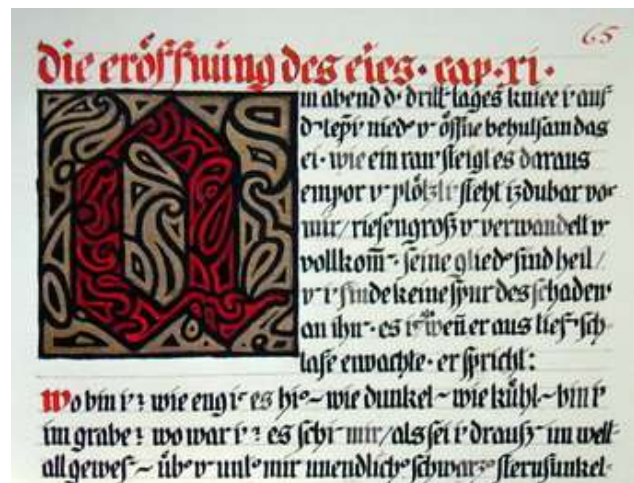 65
die eröffnung des eies · cap · xi ·
m abend d· dritt· tages kniee i· auf
d· tepi· nied· v· öffne behutsam das
ei · wie ein rau· steigt es daraus
empor v· plötzli· steht izdubar vor
mir / riesengroß v· verwandelt v·
vollkom̅· · seine glied· sind heil /
v· i· finde keine spur des schaden·
an ihn· · es i· wen̅ er aus tief· sch-
lafe erwachte · er spricht :
Wo bin i· ? wie eng i· es hi· ~ wie dunkel ~ wie kühl ~ bin i·
im grabe ? wo war i· ? es schi· mir / als sei i· drauß· im welt-
all gewes· ~ üb· v· unt· mir unendlich· schwarz· sternfunkel-